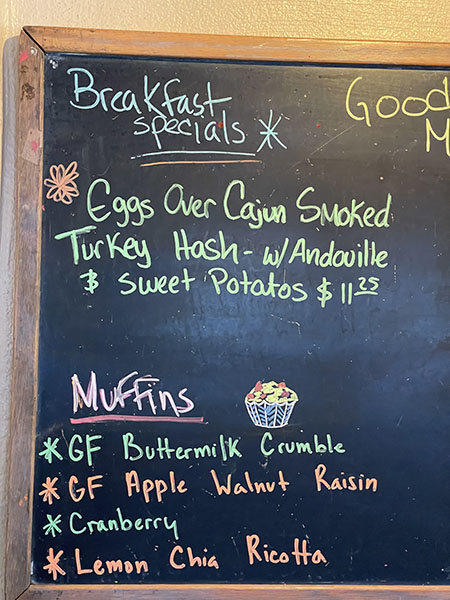 Breakfast
specials *
Good
M
* Eggs Over Cajun Smoked
Turkey Hash - w/Andouille
& Sweet Potatos $11 25
Muffins
* GF Buttermilk Crumble
* GF Apple Walnut Raisin
* Cranberry
* Lemon Chia Ricotta